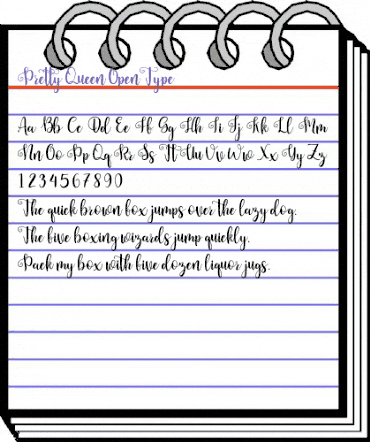 Pretty Queen Open Type
Aa Bb Cc Dd Ee Ff Gg Hh Ii Jj Kk Ll Mm
Nn Oo Pp Qq Rr Ss Tt Uu Vv Ww Xx Yy Zz
1234567890
The quick brown fox jumps over the lazy dog.
The five boxing wizards jump quickly.
Pack my box with five dozen liquor jugs.